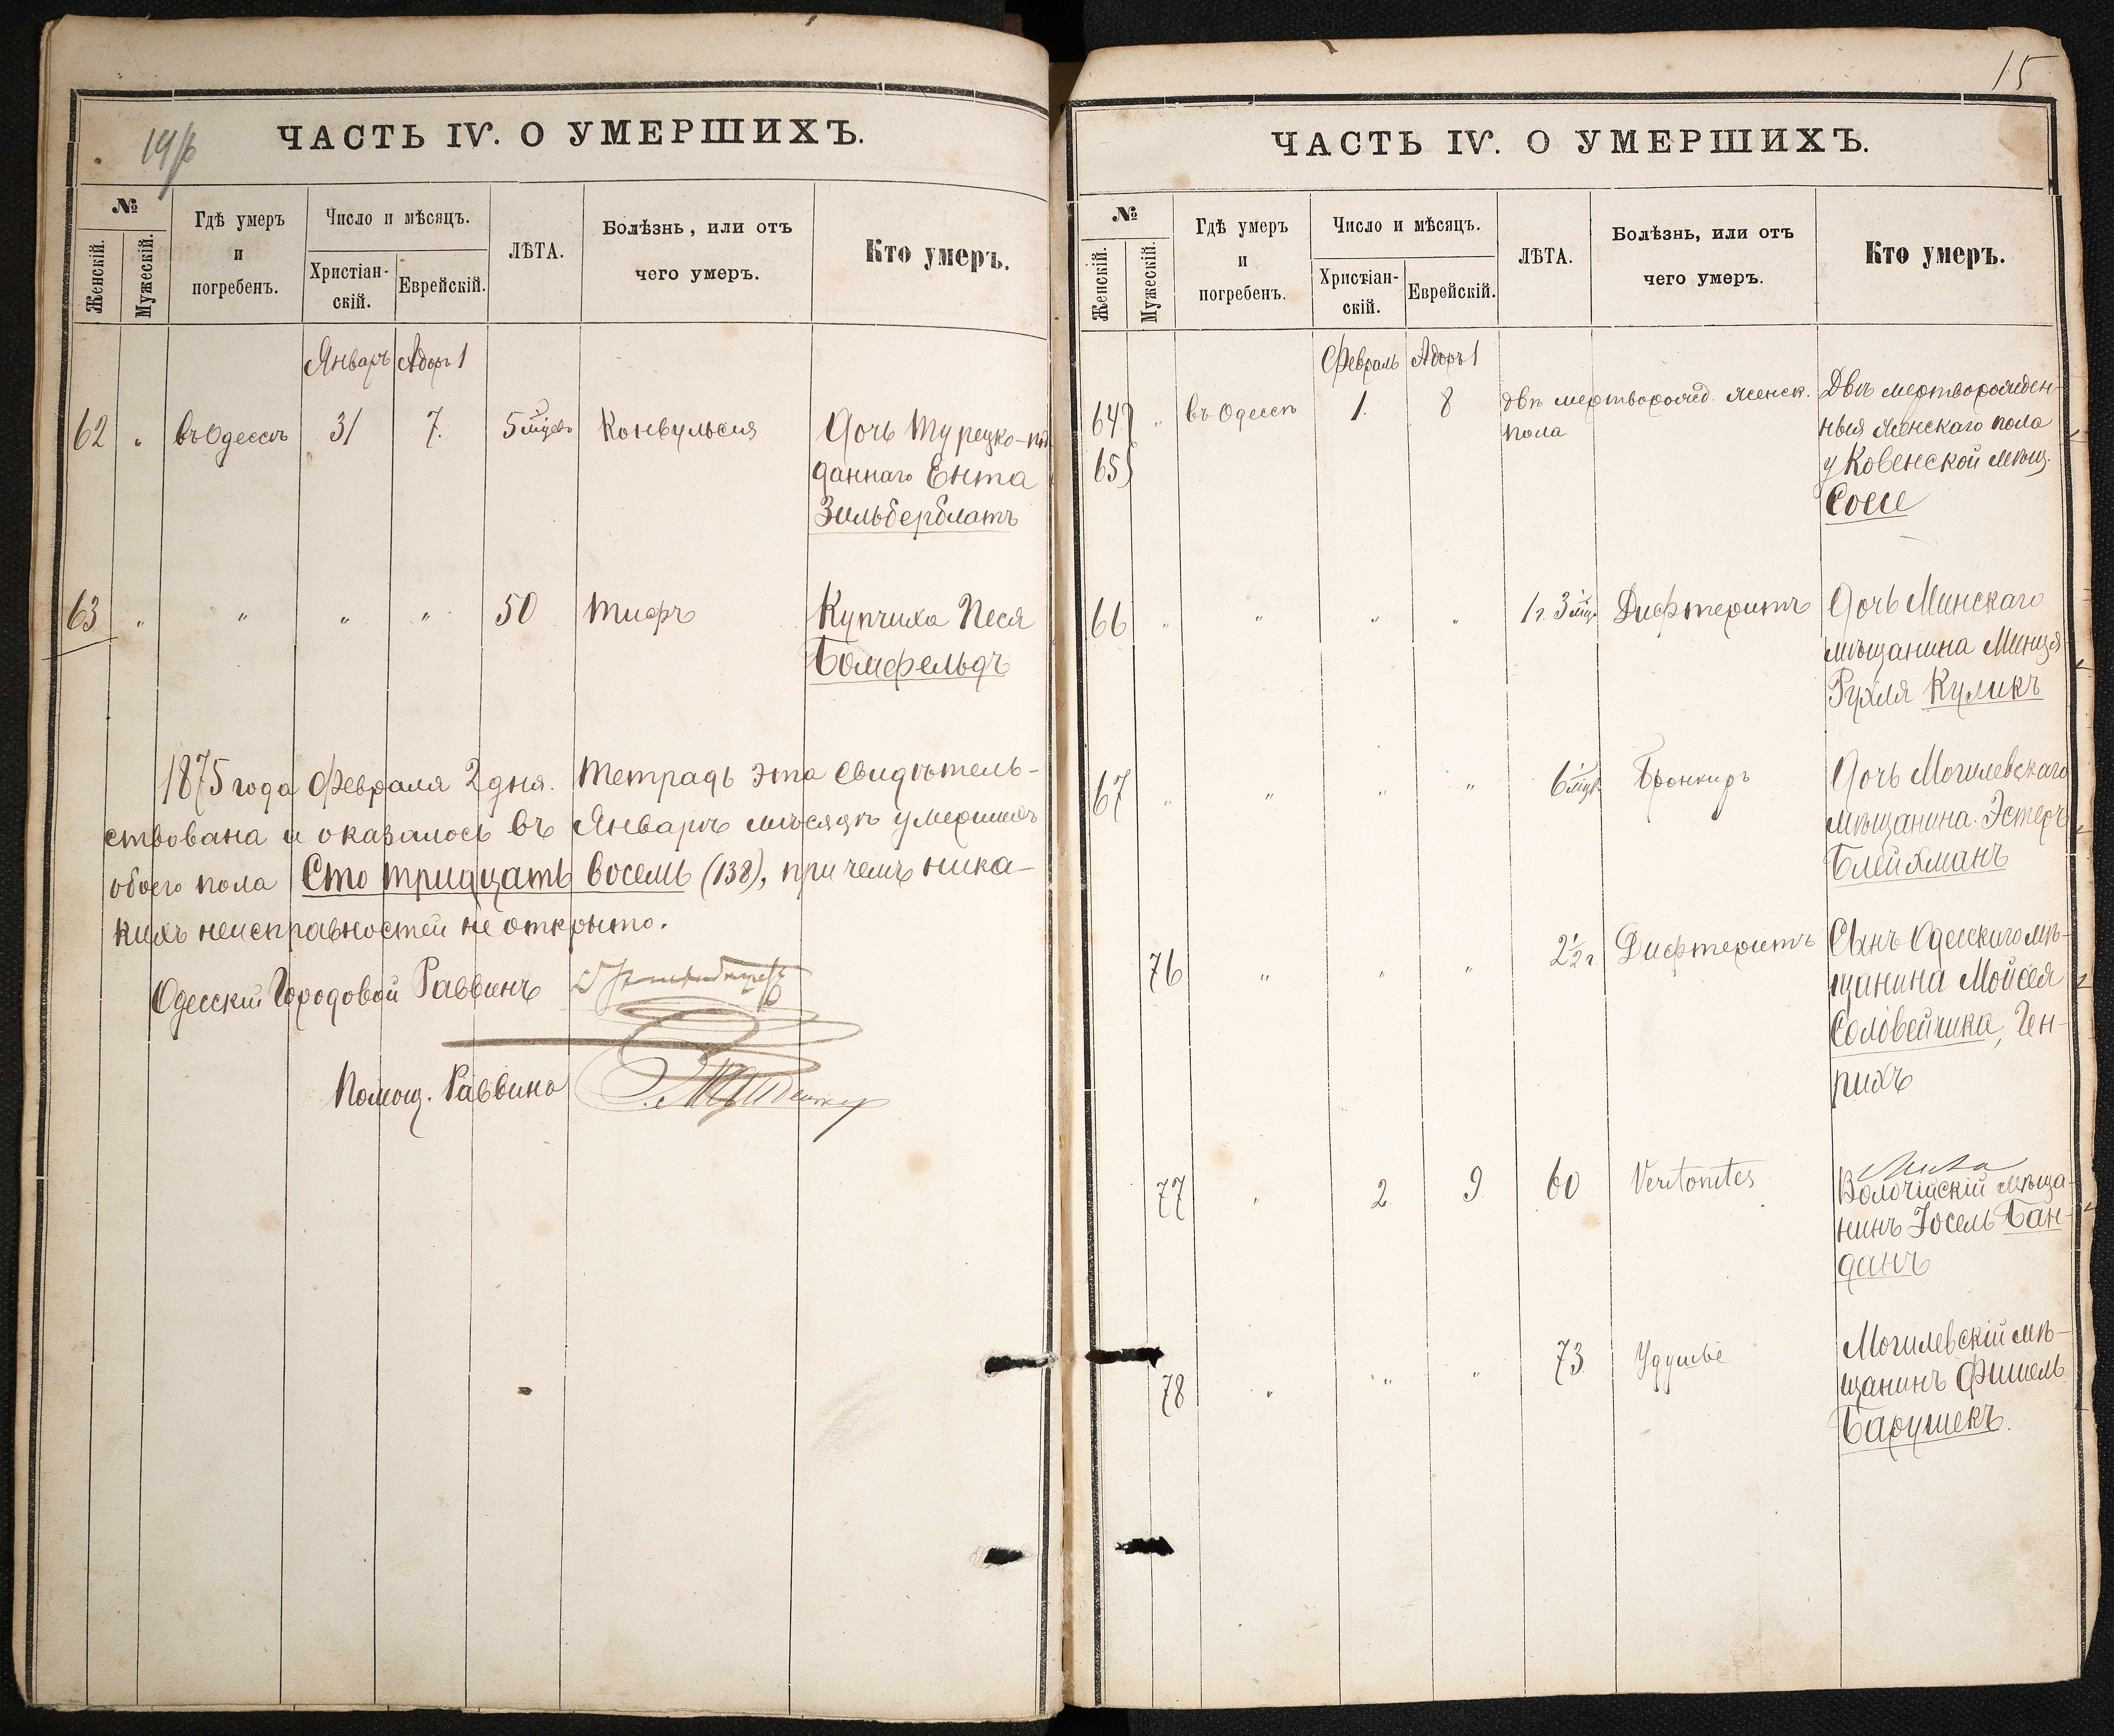 14/б
ЧАСТЬ IV. О УМЕРШИХЪ.
№
Женскій.
Мужескій.
Гдѣ умеръ
и
погребенъ.
Число и мѣсяцъ.
Христіан-
скій.
Еврейскій.
ЛѢТА.
Болѣзнь, или отъ
чего умеръ.
Кто умеръ.
Январь Адоръ 1
62 " въ Одессѣ 31 7. 5 мцевъ Конвульсія Дочь Турецко-под
даннаго Ента
Зильберблатъ
63 " " " " 50 Тифъ Купчиха Песя
Бомфельдъ
1875 года Февраля 2 дня. Тетрадь эта свидѣтель-
ствована и оказалось въ Январѣ мѣсяцѣ умершихъ
обоего пола Сто тридцать восемь (138), при чемъ ника-
кихъ неисправностей не открыто.
Одесскій Городовой Раввинъ
Помощ. Раввина
15
ЧАСТЬ IV. О УМЕРШИХЪ.
№
Женскій.
Мужескій.
Гдѣ умеръ
и
погребенъ.
Число и мѣсяцъ.
Христіан-
скій.
Еврейскій.
ЛѢТА.
Болѣзнь, или отъ
чего умеръ.
Кто умеръ.
Февраль Адоръ 1
64 " въ Одессѣ 1. 8 двѣ мертворожд. женск. Двѣ мертворожден-
65 пола ныя женскаго пола
у Ковенской мѣщ.
Соси
66 " " " " 1 г. 3 мцв Дифтеритъ Дочь Минскаго
мѣщанина Минця
Рухля Куликъ
67 " " " " 6 мцв. Дочь Могилевскаго
мѣщанина Эстеръ
Блейхманъ
76 " " " 2½ г. Дифтеритъ Сынъ Одесскаго мѣ-
щанина Мойсея
Соловейчика, Ген-
рихъ
77 " 2 9 60 Peritonites Волочійскій мѣща-
нинъ Іосель Бан-
данъ
78 " " " 73 Удушье Могилевскій мѣ-
щанинъ Фишель
Барушекъ.